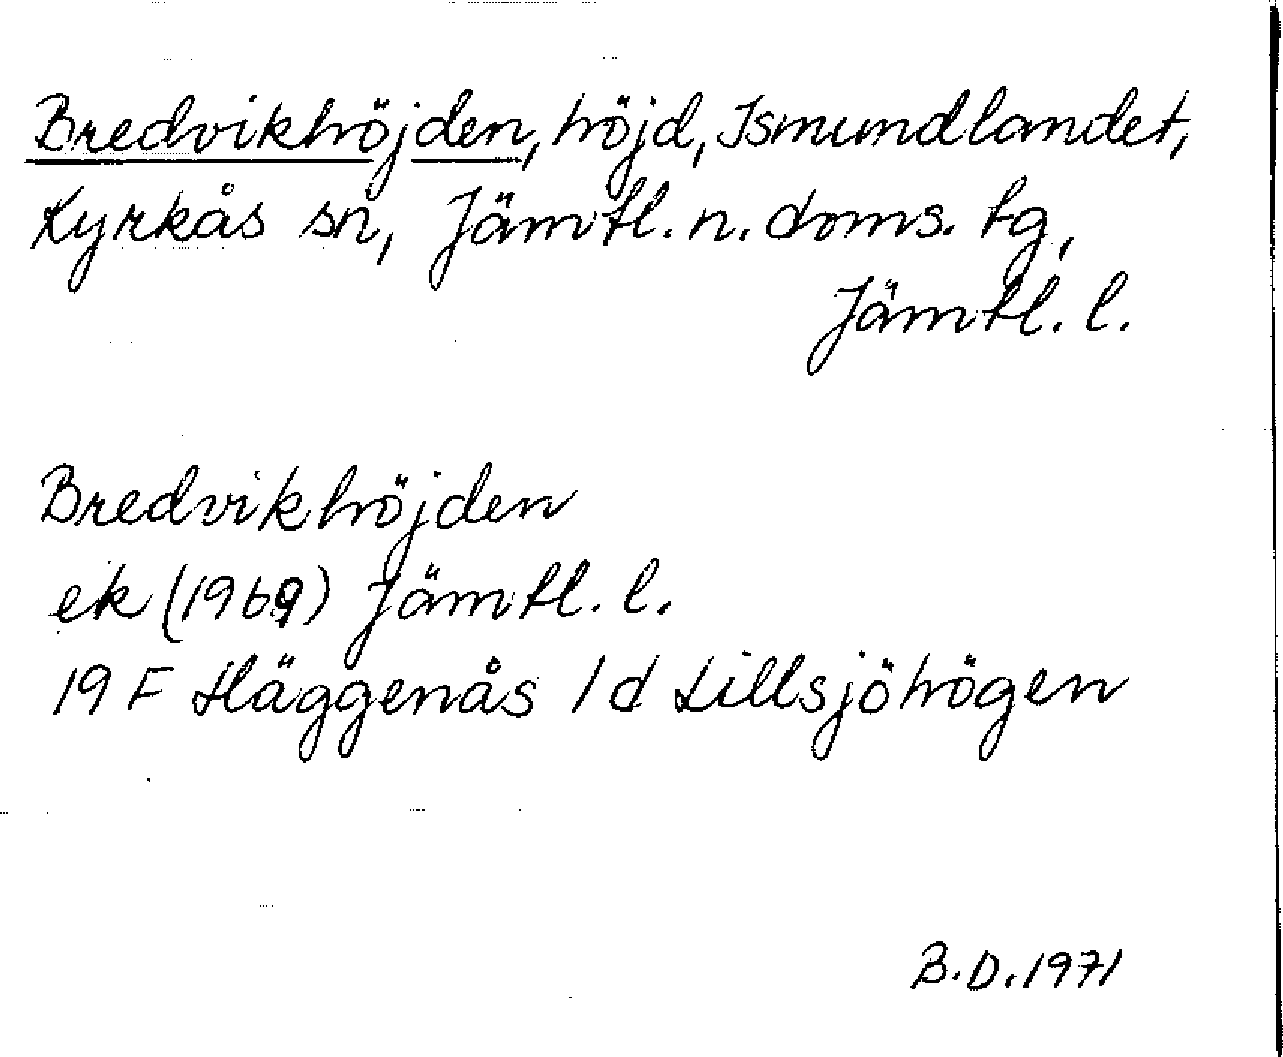 Bredvikhöjden, höjd, Ismundlandet,
Kyrkås sn, Jämtl. n. doms. tg,
Jämtl. l.
Bredvikhöjden
ek (1969) Jämtl. l.
19 F Häggenås 1 d Lillsjöhögen
B.D. 1971